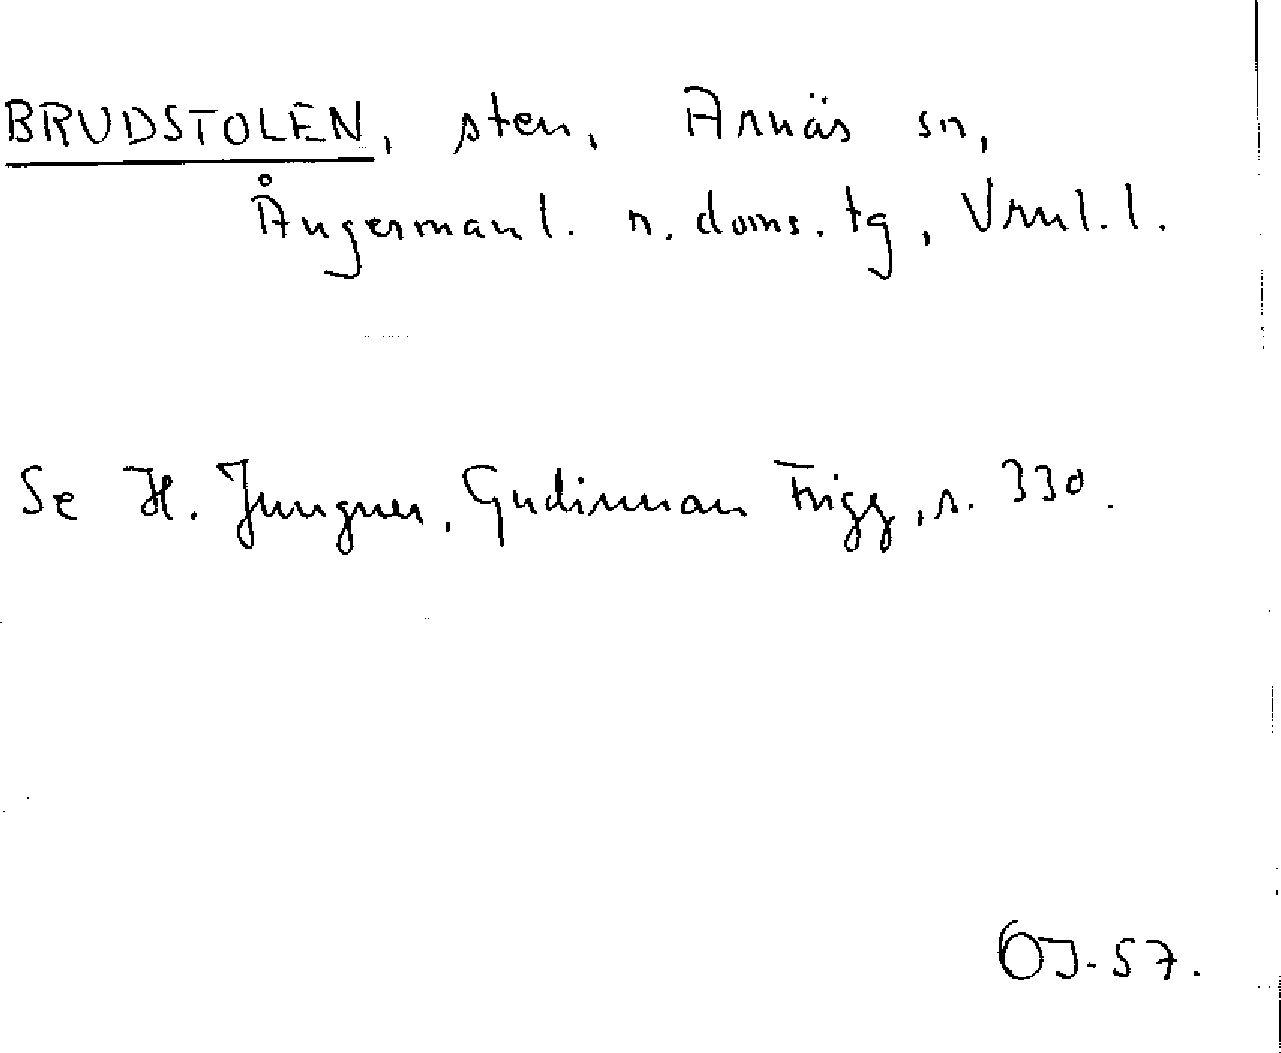 BRUDSTOLEN, sten, Arnäs sn,
Ångermanl. n. doms. tg, Vrnl. l.
Se H. Jungner, Gudinnan Frigg, s. 330.
OJ-57.